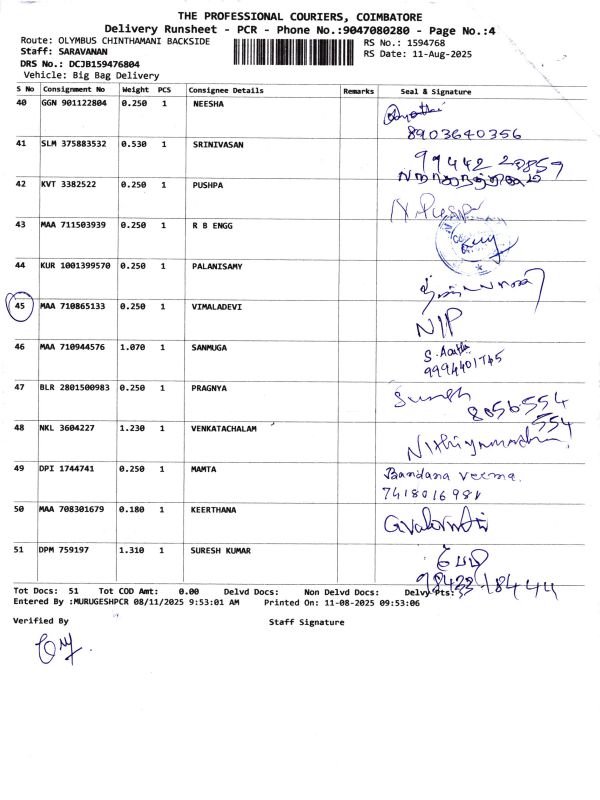 THE PROFESSIONAL COURIERS, COIMBATORE
Delivery Runsheet - PCR - Phone No.:9047080280 - Page No.:4
Route: OLYMBUS CHINTHAMANI BACKSIDE
RS No.: 1594768
Staff: SARAVANAN
RS Date: 11-Aug-2025
DRS No.: DCJB159476804
Vehicle: Big Bag Delivery
S No Consignment No Weight PCS Consignee Details Remarks Seal & Signature
40 GGN 901122804 0.250 1 NEESHA
8903640356
41 SLM 375883532 0.530 1 SRINIVASAN
42 KVT 3382522 0.250 1 PUSHPA
43 MAA 711503939 0.250 1 R B ENGG
44 KUR 1001399570 0.250 1 PALANISAMY
45 MAA 710865133 0.250 1 VIMALADEVI
N/P
46 MAA 710944576 1.070 1 SANMUGA
9994401745
47 BLR 2801500983 0.250 1 PRAGNYA
Suresh 8056554
554
48 NKL 3604227 1.230 1 VENKATACHALAM
49 DPI 1744741 0.250 1 MAMTA Bandana Verma.
7418016981
50 MAA 708301679 0.180 1 KEERTHANA
51 DPM 759197 1.310 1 SURESH KUMAR
Tot Docs: 51 Tot COD Amt: 0.00 Delvd Docs: Non Delvd Docs: Delvy Pts:
Entered By :MURUGESHPCR 08/11/2025 9:53:01 AM Printed On: 11-08-2025 09:53:06
Verified By Staff Signature